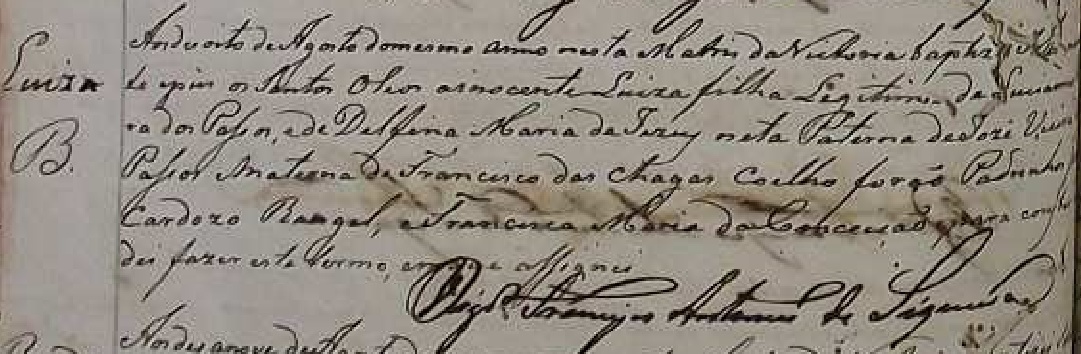 Luiza
B.
Aos desoito de Agosto do mesmo anno nesta Matris da Victoria baptizei
e puz os Santos Oleos a innocente Luiza filha Legitima de
ra dos Passos, e de Delfina Maria de Jezus neta Paterna de Jozé
Passos Materna de Francisco das Chagas Coelho forão Padrinhos
Cardozo Rangel, e Francisca Maria da Conceição, e para
dei fazer este termo, em que assignei
Francisco Antonio de Siqueira
Aos desanove de